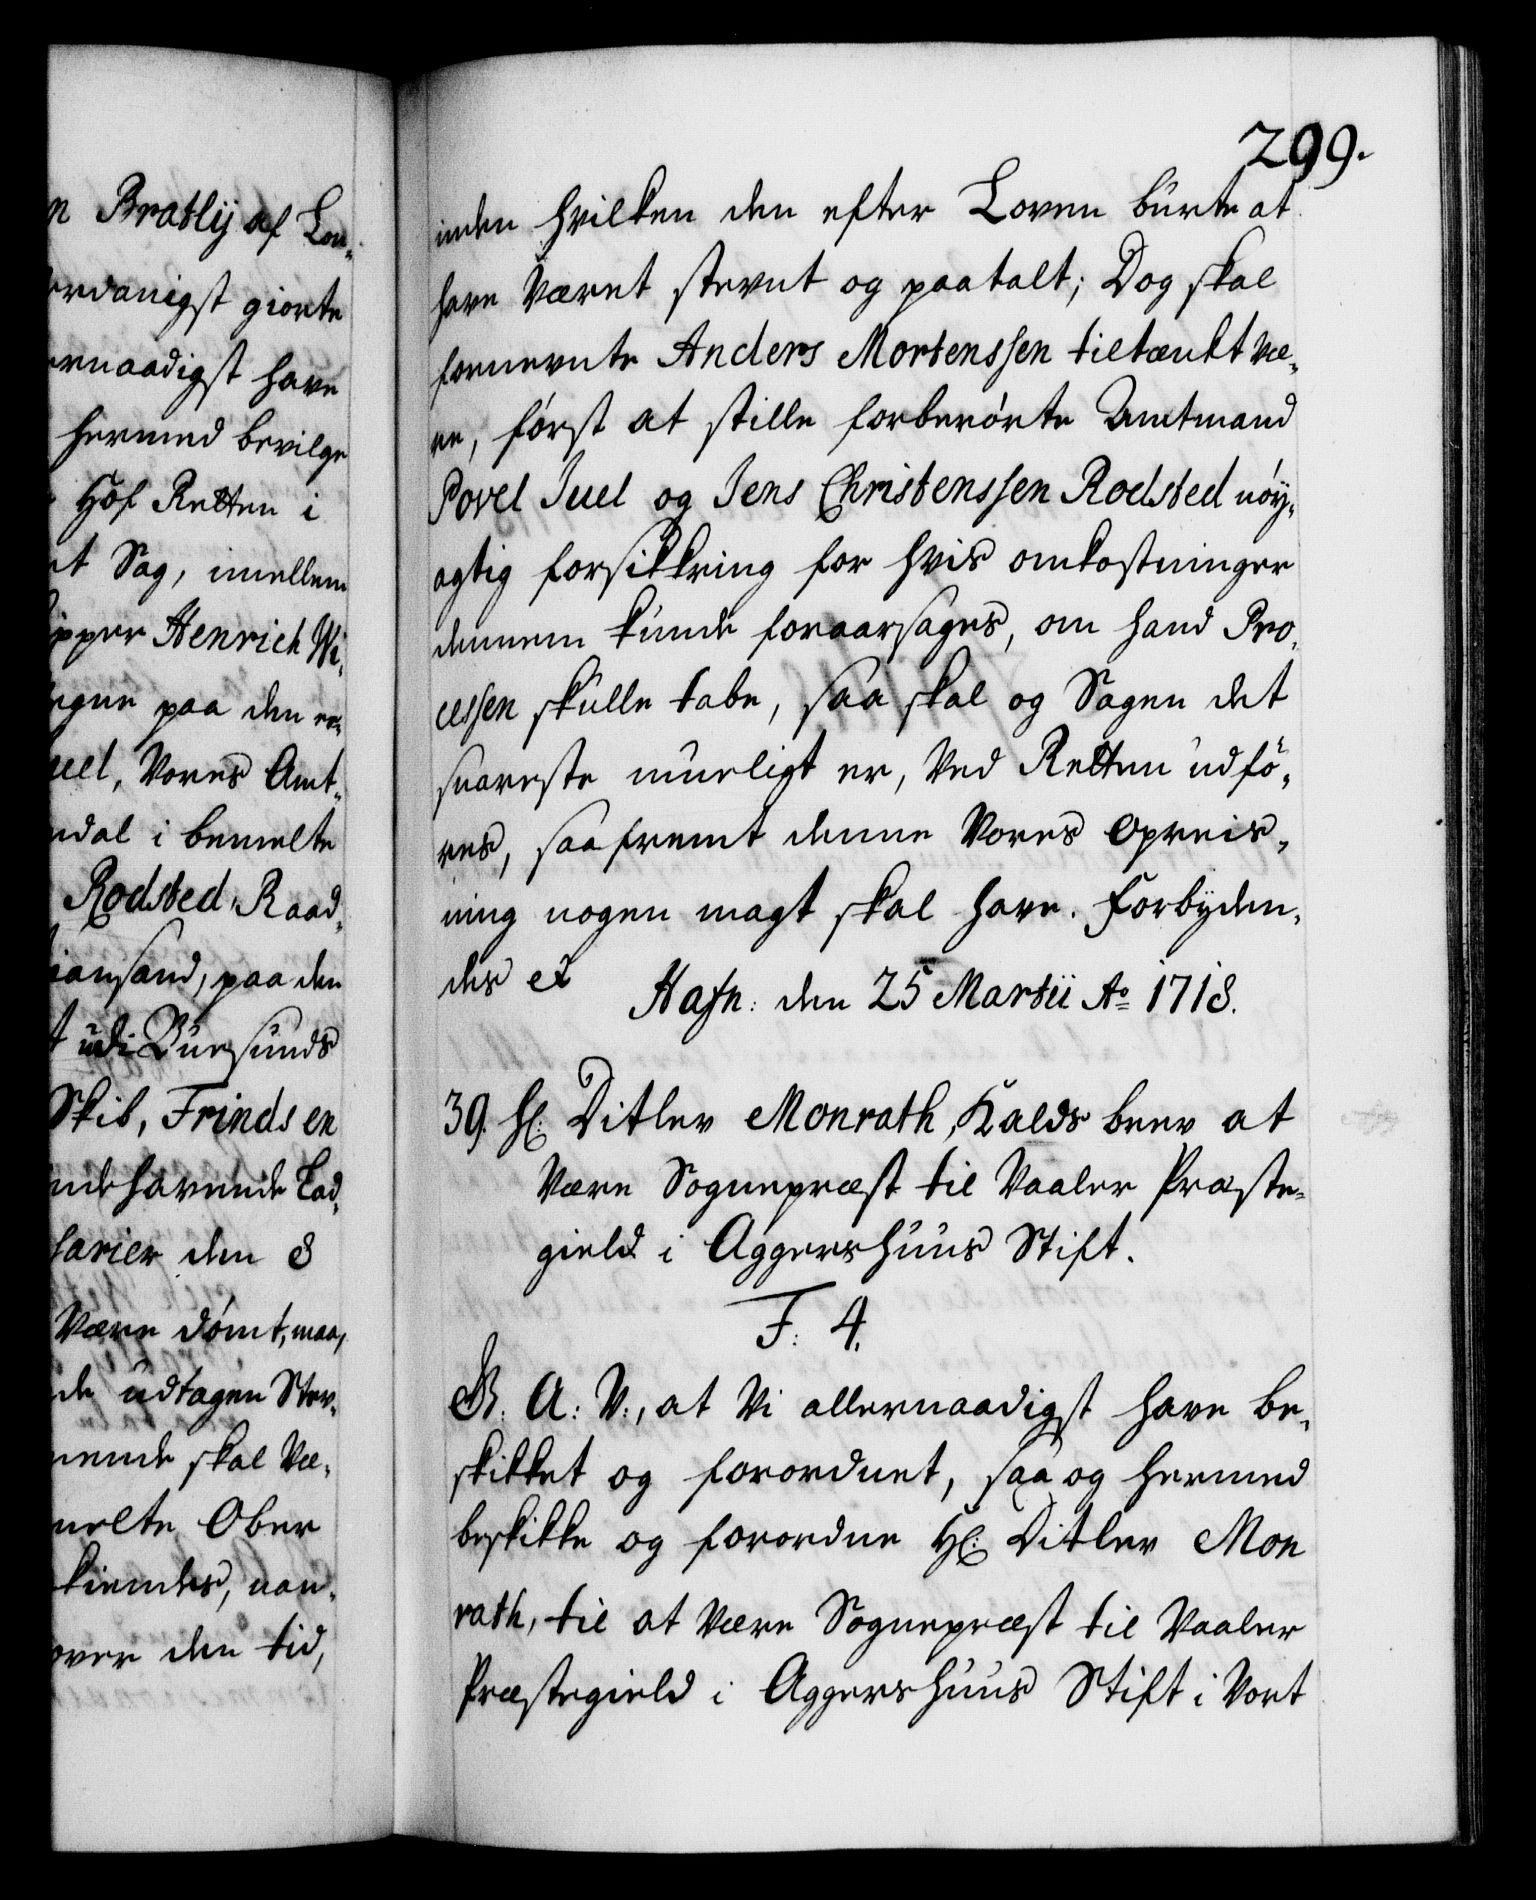 299.
n Bratlij af Lon-
rdanigst giorte
rnaadigst have
hermed bevilge
Hof Retten i
t Sag, imellem
ipper Henrich Wi-
egne paa den ee-
uel, Vores Amt-
ndal i bemelte
Rodsted, Raad-
iansand, paa den
t udi Bursunds
Skib, Frinds en
nde havende Lad-
harier den 8
Være dømt, maa,
de udtagen Stev-
nende skal Væ-
melte Ober
kiendes, uan-
over den tid,
inden hvilken den efter Loven burte at
have Været stevnt og paatalt; Dog skal
fornevnte Anders Mortenssen tiltænkt væ-
re, først at stille forberørte Amtmand
Povel Juel og Jens Christenssen Rodsted nøy-
agtig forsikkring for hvis omkostninger
dennem kunde foraarsages, om hand Pro-
cessen skulle tabe, saa skal og Sagen det
snareste mueligt er, Ved Retten udfø-
res, saafremt denne Vores Opreis-
ning nogen magt skal have. Forbyden-
des et
Hafn: den 25 Martii Ao 1718.
39. Hr: Ditlev Monrath, Kalds brev at
Være Sognepræst til Vaaler Præste-
gield i Aggershuus Stift.
F: 4.
G: A: V:, at Vi allernaadigst have be-
skikket og forordnet, saa og hermed
beskikke og forordne Hr: Ditlev Mon
rath, til at Være Sognepræst til Vaaler
Præstegield i Aggershuus Stift i Vort